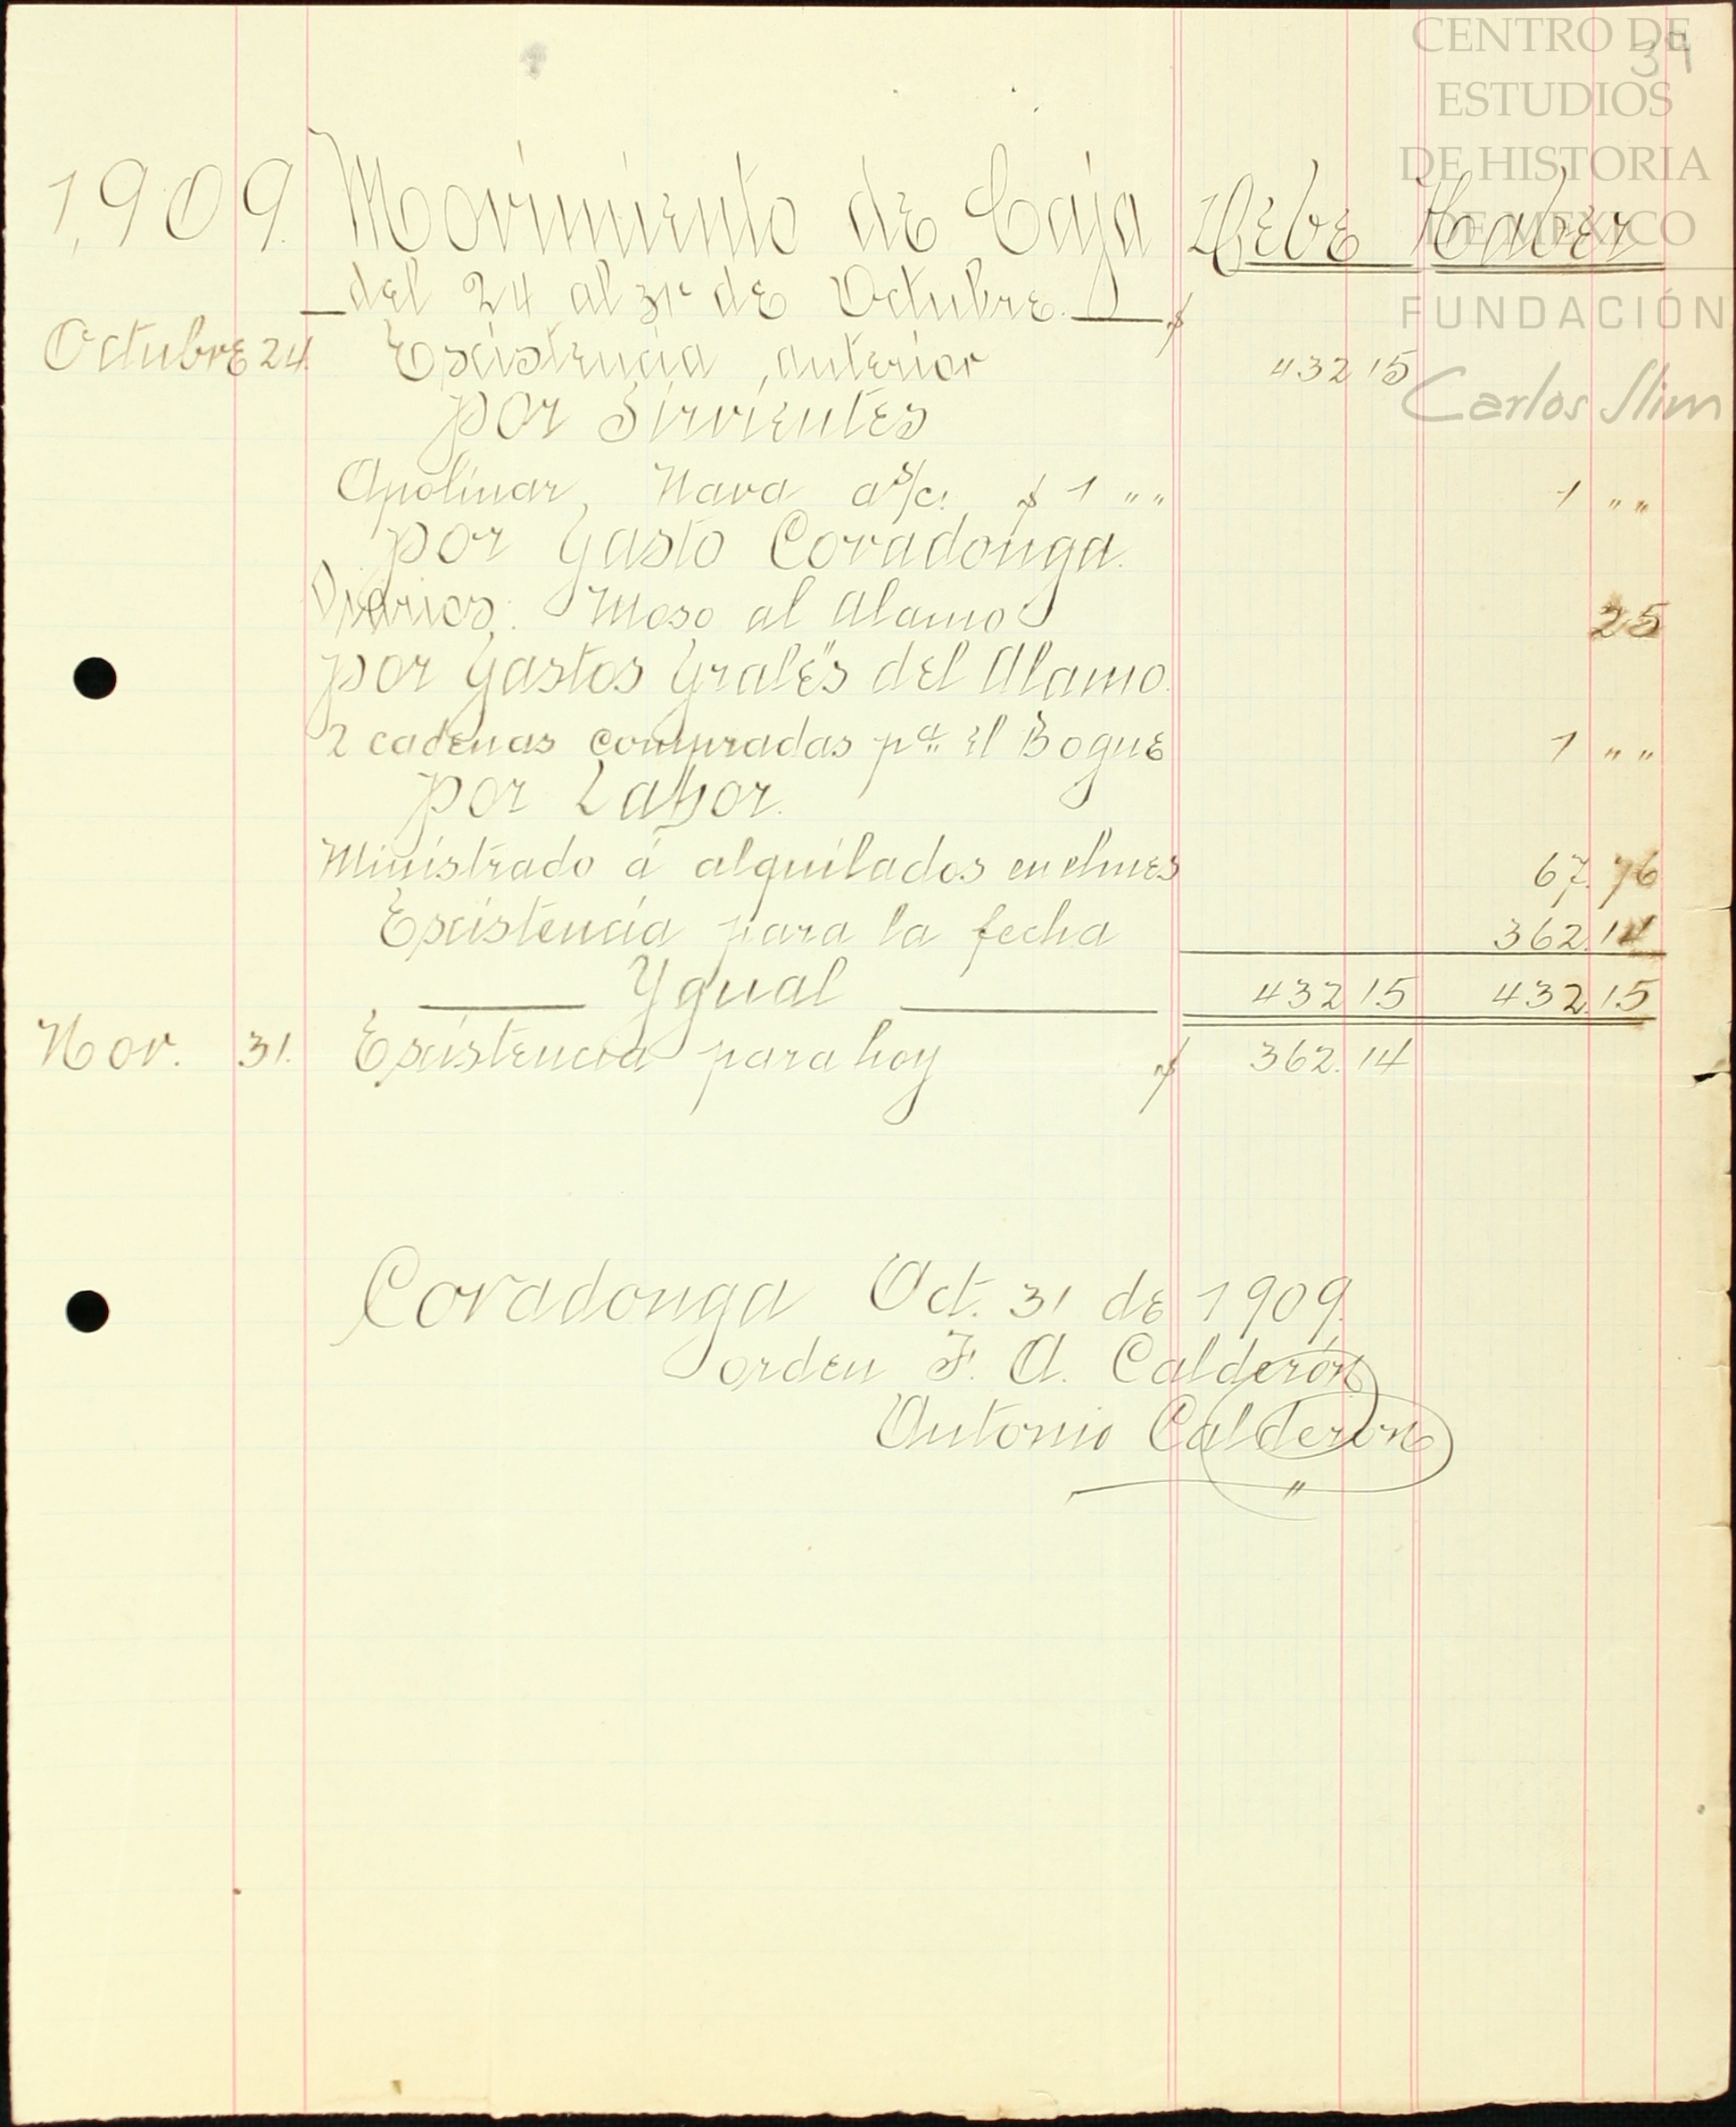 CENTRO DE
ESTUDIOS
DE HISTORIA
DE MÉXICO
FUNDACIÓN
Carlos Slim
1,909. Movimiento de Caja Debe Haber
del 24 al 31 de Octubre. $
Octubre 24. Escistencia anterior 432 15
por Sirvientes
Apolinar Nava a s/c. $ 1 „„ 1 „„
por Gasto Covadonga.
Diarios: Moso al Alamo 25
por Gastos Grales del Alamo.
2 cadenas compradas pa. el Bogue 1 „„
por Labor.
Ministrado á alquilados en el mes 67. 76
Escistencia para la fecha 362. 14
Ygual 432 15 432. 15
Nov. 31. Escistencia para hoy $ 362. 14
Covadonga Oct. 31 de 1909.
orden F. A. Calderón
Antonio Calderon